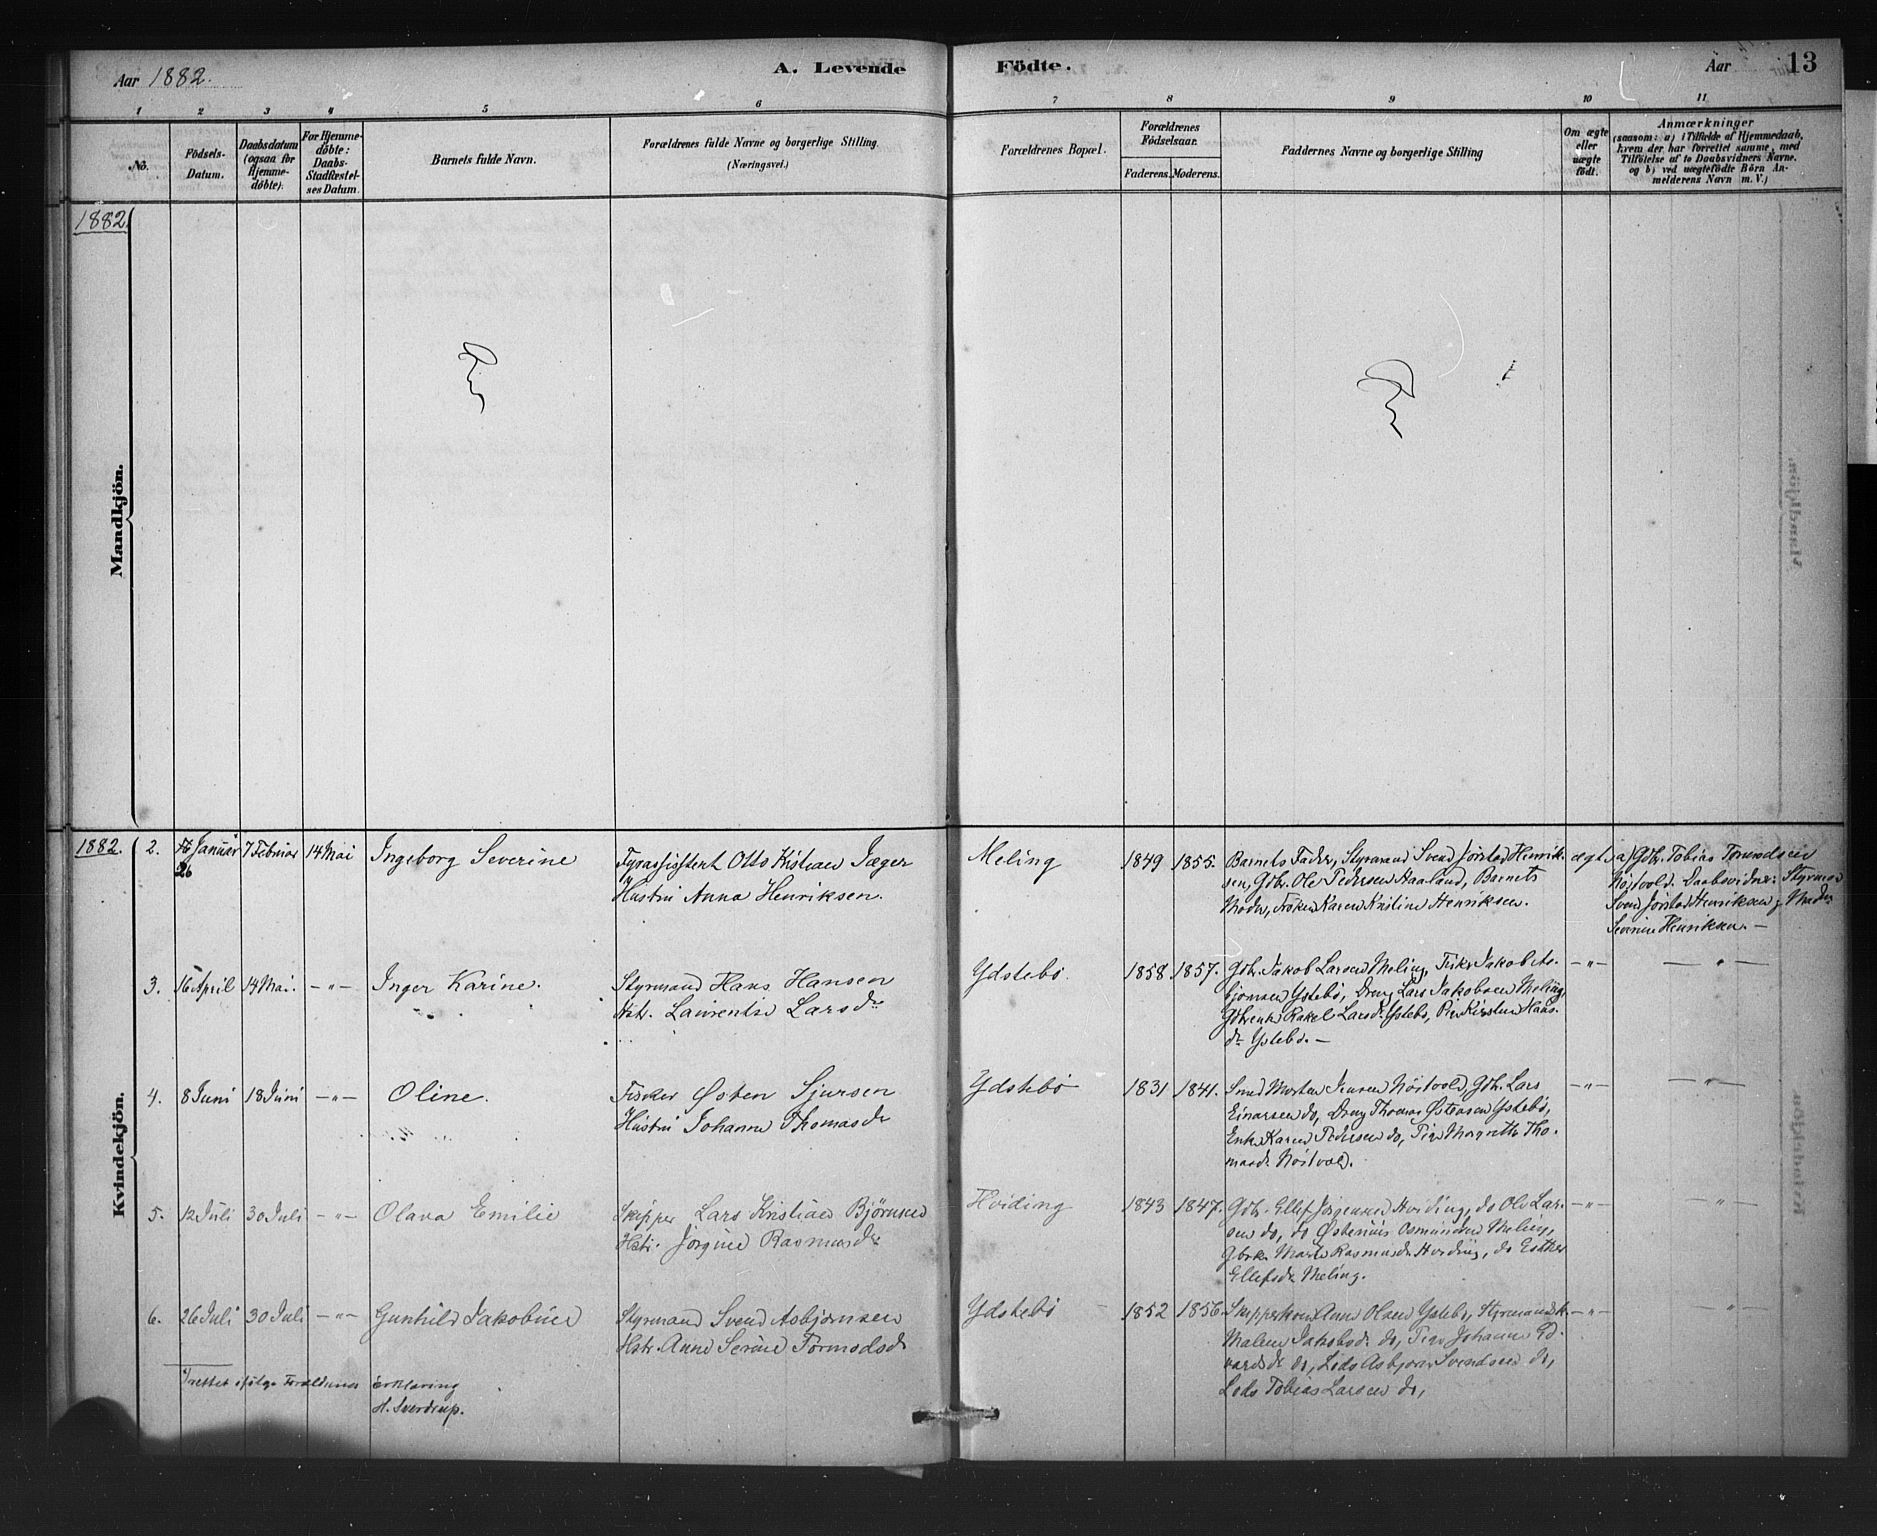 Aar 1882. A. Levende Födte. Aar 13
1 2 3 4 5 6 7 8 9 10 11
No.
Födsels-
Datum.
Daabsdatum
(ogsaa for
Hjemme-
döbte).
For Hjemme-
döbte:
Daabs-
Stadfæstel-
ses Datum.
Barnets fulde Navn.
Forældrenes fulde Navne og borgerlige Stilling.
(Næringsvei.)
Forældrenes Bopæl.
Forældrenes
Födselsaar.
Faderens. Moderens.
Faddernes Navne og borgerlige Stilling
Om ægte
eller
uægte
födt.
Anmærkninger
(saasom: a) i Tilfælde af Hjemmedaab,
hvem der har forrettet samme, med
Tilföielse af to Daabsvidners Navne.
og b) ved uægtefödte Börn An-
melderens Navn m. V.)
1882.
Mandkjön.
1882.
Kvindekjön.
2. Januar 7 Februar 14 Mai Ingeborg Severine
26
Otto Kristian Jæger
Hustru Anna Henriksen.
Meling 1849 1855.
Barnets Fader, Styrmand Svend Jørstad Henrik-
sen, Gdbr. Ole Pedersen Haaland, Barnets
Moder, Frøken Karen Kristine Henriksen.
ægte
a) Gdbr. Tobias
Nøstvold. Daabsvidner: Styrmand
Svend Jørstad Henriksen, Madm
Severine Henriksen. —
3. 16 April 14 Mai. —"— Inger Karine.
Styrmand Hans Hansen
Hstr. Laurentse Larsdr
Ydstebø. 1858. 1857.
Gdbr. Jakob Larsen Meling, Fisker Jakob As-
bjørnsen Ystebø, Dreng Lars Jakobsen Meling,
Rakel Larsdr Ystebø, Pige Kirsten Hans-
dr Ystebø. —
—"— —"—
4. 8 Juni 18 Juni —"— Oline.
Fisker Østen Sjursen
Hustru Johanne Thomasdr
Ydstebø 1831 1841.
Smed Morten Nøstvold, Gdbr. Lars
Einarsen do, Dreng Thomas Østensen Ystebø,
Enke Karen Pedersen do, Pige Margrethe Tho-
masdr Nøstvold.
—"— —"—
5. 12 Juli 30 Juli —"— Olava Emilie
Skipper Lars Kristian Bjørnsen
Hstr. Jørgine Rasmusdr
Hviding 1843 1847.
Gdbr. Ellef Jørgensen Hviding, do Ole Lar-
sen do, do Østenius Osmundsen Meling,
Marte Rasmusdr Hviding, do Esther
Ellefsdr Meling.
—"— —"—
6. 26 Juli 30 Juli —"— Gunhild Jakobine
Styrmand Svend Asbjørnsen
Hstr. Anne Serine Tormodsdr
Ydstebø 1852 1856
Skipperkone Anne Olsen Ystebø, Styrmandsk.
Malene Jakobsdr do, Pige Johanne Ed-
vardsdr do, Lods Asbjørn Svendsen do,
Lods Tobias Larsen do,
—"— —"—
rettet ifølge Forældrenes Erklæring
H. Sverdrup.